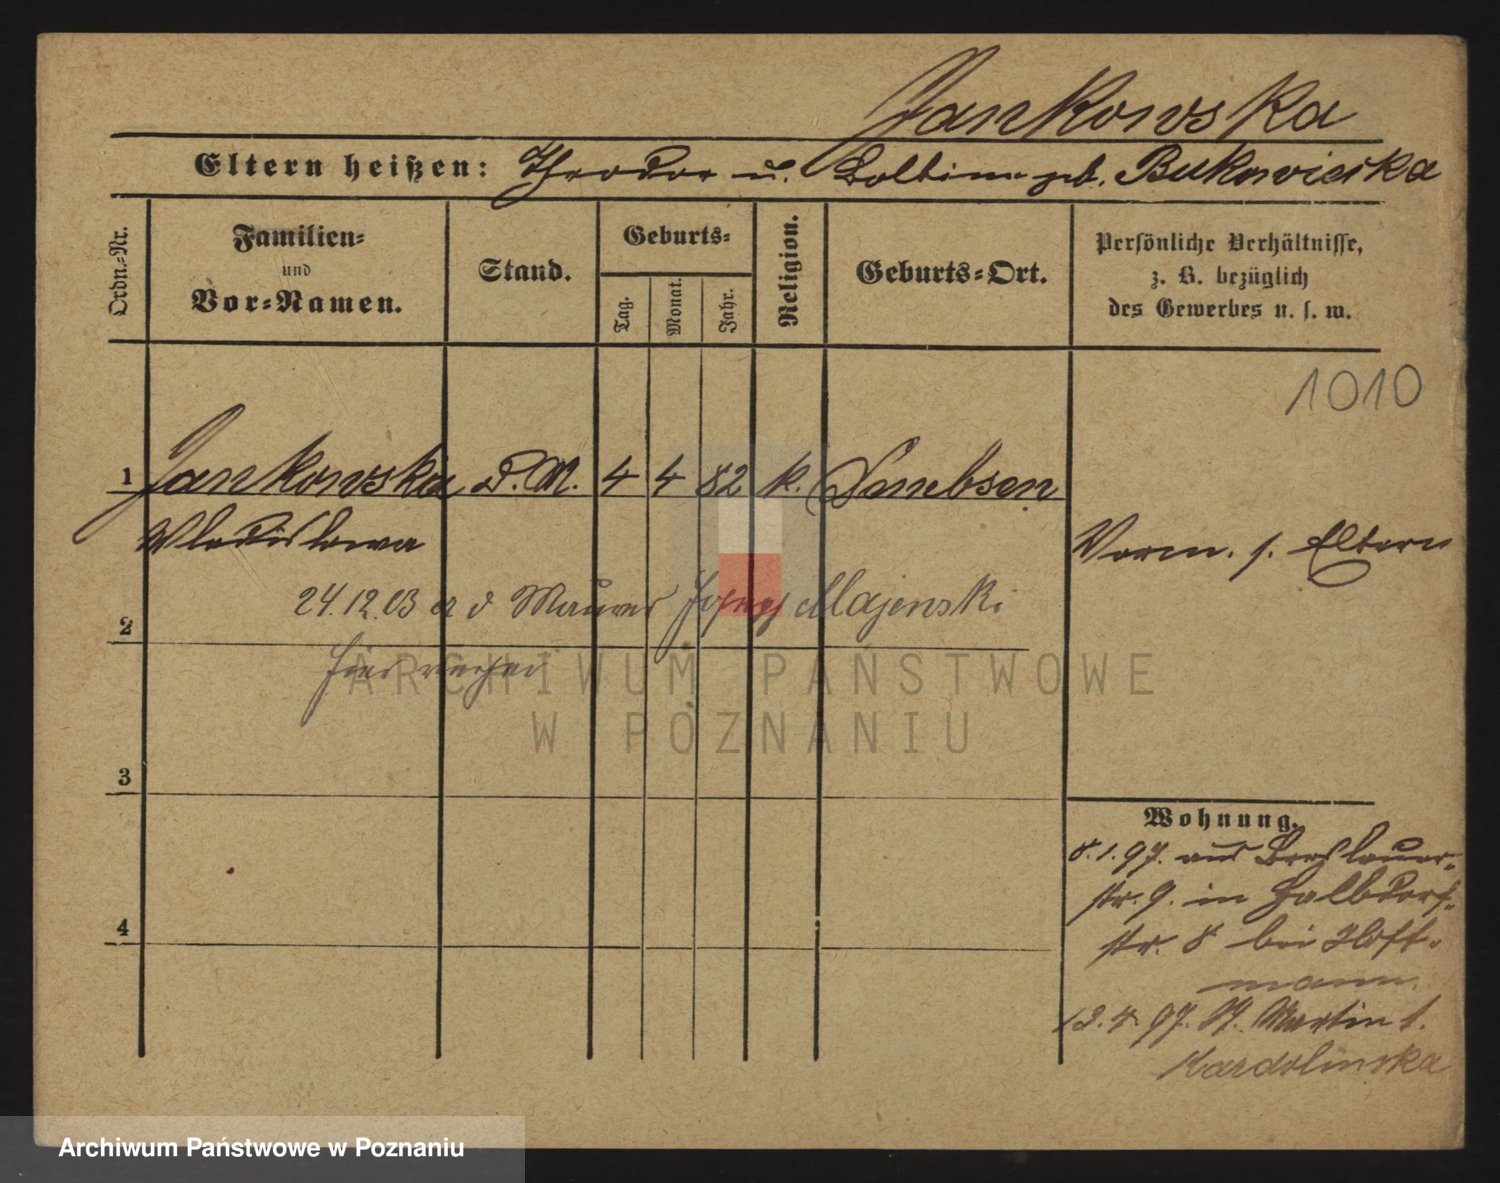 Jankowska
Eltern heißen: Theodor u. geb. Bukowiecka
Ordn.=Nr.
Familien=
und
Vor=Namen.
Stand.
Geburts=
Tag.
Monat.
Jahr.
Religion.
Geburts=Ort.
Persönliche Verhältnisse,
z. B. bezüglich
des Gewerbes u. s. w.
1010
1 Jankowska D.M. 4 4 82 k.
Wladislawa
Vorm. s. Eltern
24.12.03 a d Maurer Josef Majewski
2
hier
3
Wohnung.
8.1.97. aus Breslauer=
str. 9. in Halbdorf=
str. 8 bei Hoff=
mann.
4
13.4.97. St. Martin 1.
Kardolinska
ARCHIWUM PAŃSTWOWE
W POZNANIU
Archiwum Państwowe w Poznaniu